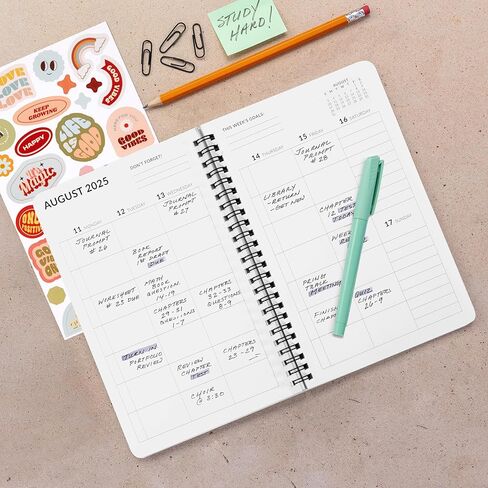 STUDY
HARD!
LOVE
LOVE
LOVE
GOOD VIBES
KEEP
GROWING
HAPPY
LIFE IS
GOOD
GOOD
VIBES
Magic
POSITIVE
GOOD
AUGUST 2025
DON'T FORGET!
THIS WEEK'S GOALS:
AUGUST
11 MONDAY
12 TUESDAY
13 WEDNESDAY
14 THURSDAY
15 FRIDAY
16 SATURDAY
17 SUNDAY
JOURNAL
PROMPT
# 26
WORKSHEET
# 23 DUE
TURN IN
PORTFOLIO
REVIEW
BOOK
REPORT
1ST DRAFT
DUE
MATH
BOOK
QUESTION
14-19
CHAPTERS
29-31
QUESTIONS
1-7
REVIEW
CHAPTER
TEST
CHOIR
@ 5:30
JOURNAL
PROMPT
# 27
CHAPTERS
32-33
QUESTIONS
8-9
CHAPTERS
25-29
LIBRARY
-RETURN
-GET NEW
JOURNAL
PROMPT
# 28
CHAPTER
12 TEST
TODAY
PRINT
TRACK
MEETING
FINISH
QUIZ
CHAPTERS
26-9